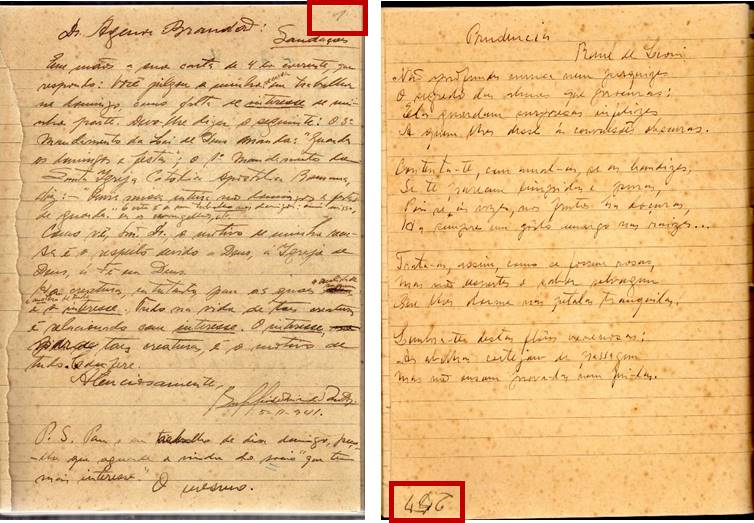 1
Dr. Agenor Brandão:
Saudações
Em mãos a sua carta de 4 do corrente, que
respondo: Você julgou a minha em trabalhar
no domingo, como falta de interesse de mi-
nha parte. Devo lhe dizer o seguinte: O 3º
Mandamento da Lei de Deus manda: "Guardar
os domingos e festas; o 1º Mandamento da
Santa Igreja Catolica Apostolica Romana,
diz: - Ouvir missa inteira nos domingos e festas
de guarda.
Como vê, bom Dr. o motivo de minha
é o respeito devido a Deus, á Igreja de
Deus, á fé em Deus.
Ha creaturas, entretanto para as quaes
é o interesse. Tudo na vida de taes creaturas
é relacionado com interesse. O interesse
taes creaturas, é o motivo de
tudo. Sempre.
Atenciosamente,
P. S. Para o trabalho de dois domingo,
que aguarde a vinda do socio "que tem
mais interesse" O mesmo.
Prudencia
Raul de Leoni
Não aprofundes nunca nem pesquises
O segredo das almas que procuras:
Elas guardam surpresas infelizes
A quem lhes desce ás convulsões obscuras.
Contenta-te com amal-as, se as bemdizes,
Se te parecem limpidas e puras,
Pois se, ás vezes, nos frutos ha doçuras,
Ha sempre um gosto amargo nas raizes...
Trata-as, assim, como se fossem rosas,
mas não despertes o sabor selvagem
Que lhes dorme nas petalas tranquilas.
Lembra-te destas flôres venenosas!
As abelhas cortejam de passagem
mas não ousam proval-as nem feril-as.
257